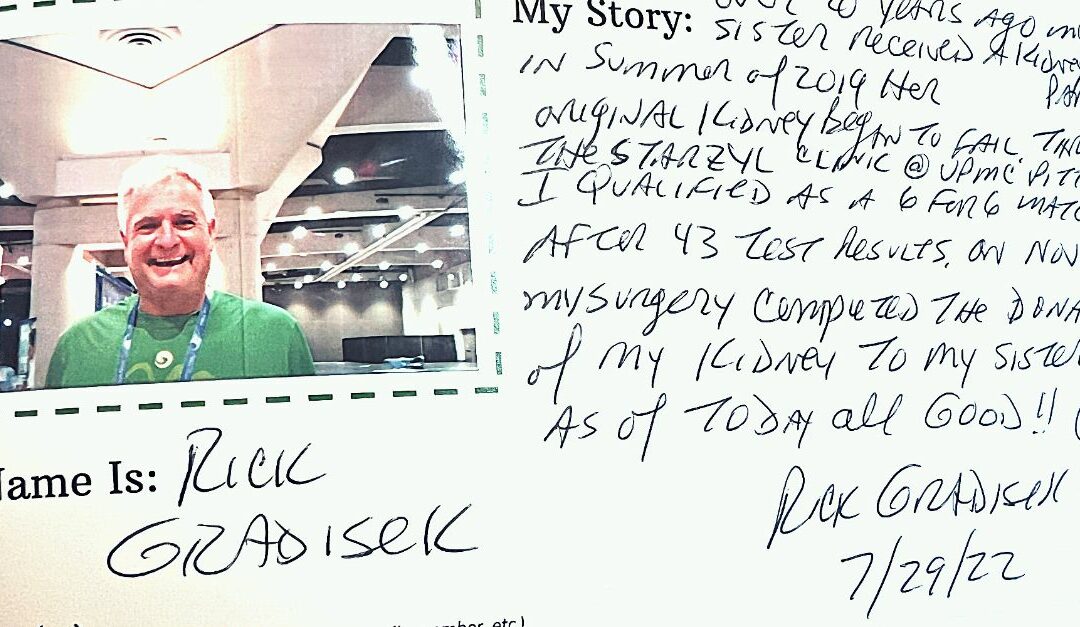 My Story: OVER 20 YEARS AGO my
SISTER RECEIVED A KIDNEY
IN SUMMER of 2019 HER
ORIGINAL KIDNEY BEGAN TO FAIL. THRU
THE STARZYL CLINIC @ UPMC PITT
I QUALIFIED AS A 6 FOR 6 MATC
AFTER 43 TEST RESULTS. ON NOV
my surgery COMPLETED THE DONA
of my KIDNEY TO my SISTER
AS of TODAY all GOOD!! (
Name Is: RICK
GRADISEK
RICK GRADISEK
7/29/22
mber, etc)